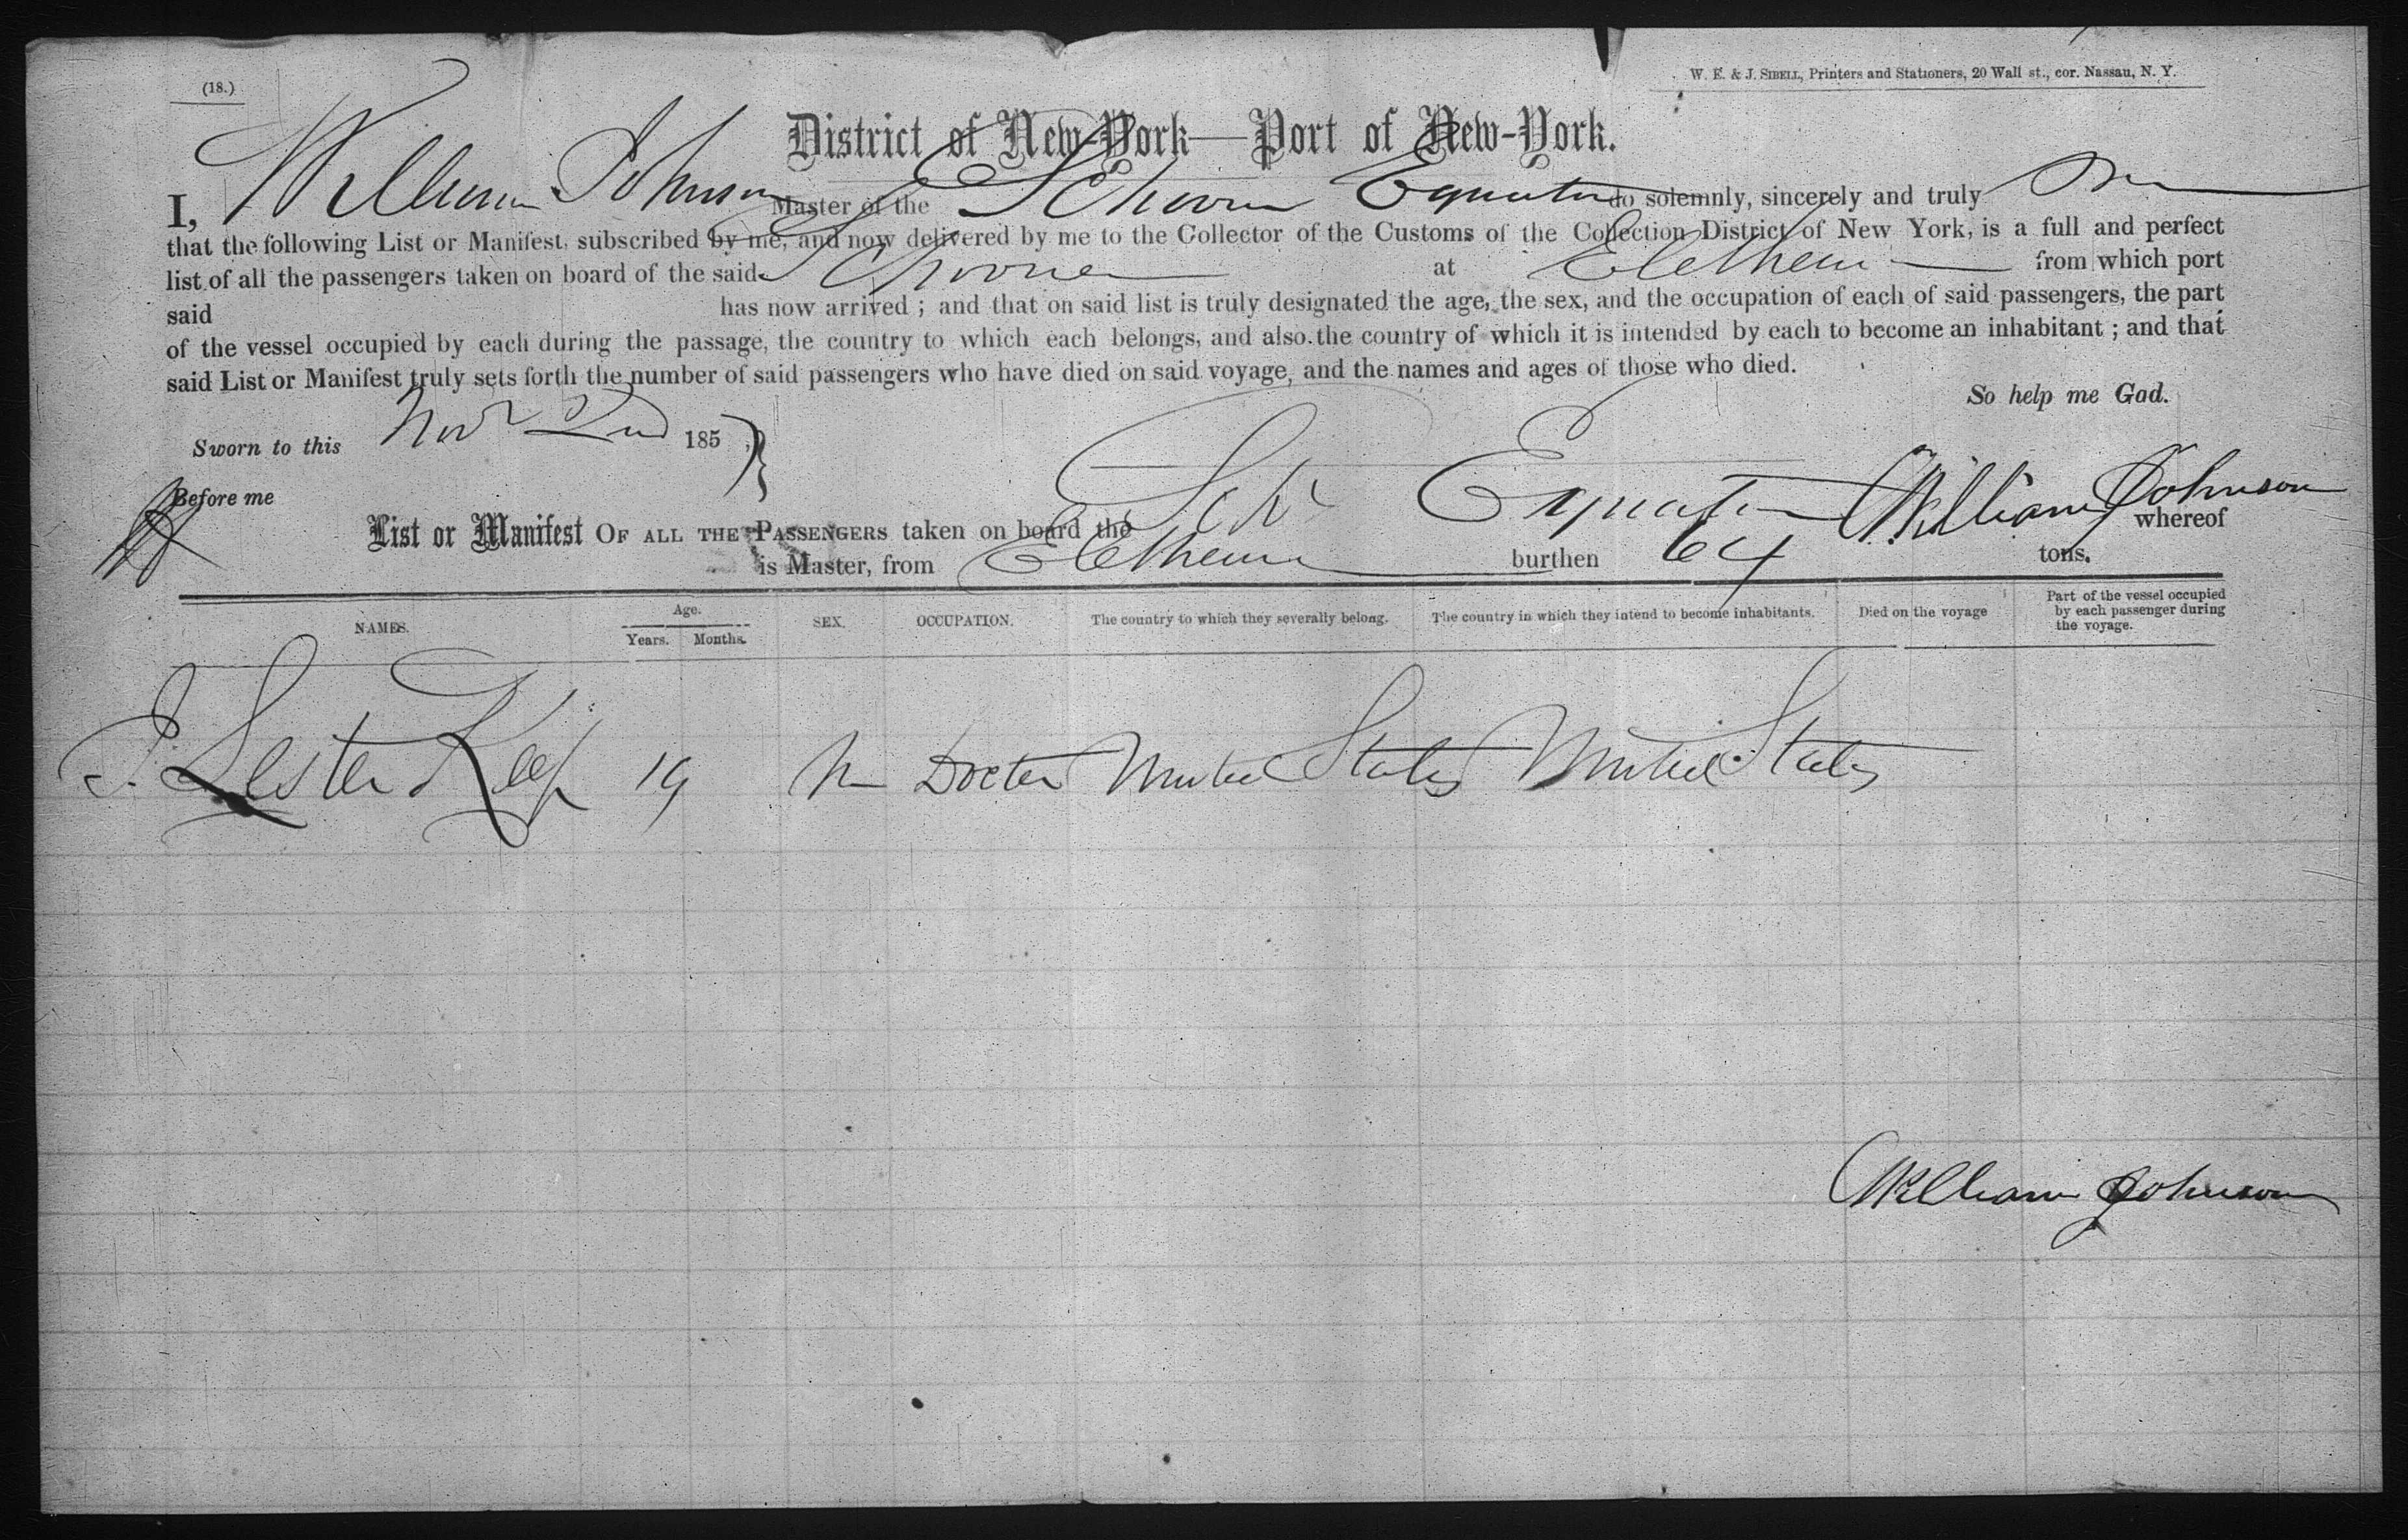 (18.)
W. E. & J. SIBELL, Printers and Stationers, 20 Wall st., cor. Nassau, N. Y.
District of New-York—Port of New-York.
I, William Johnson Master of the Schooner Equator do solemnly, sincerely and truly
that the following List or Manifest, subscribed by me, and now delivered by me to the Collector of the Customs of the Collection District of New York, is a full and perfect
list of all the passengers taken on board of the said Schooner at Eletheua from which port
said has now arrived ; and that on said list is truly designated the age, the sex, and the occupation of each of said passengers, the part
of the vessel occupied by each during the passage, the country to which each belongs, and also the country of which it is intended by each to become an inhabitant ; and that
said List or Manifest truly sets forth the number of said passengers who have died on said voyage, and the names and ages of those who died.
So help me God.
Sworn to this Nov 2nd 185
Before me
William Johnson
List or Manifest OF ALL THE PASSENGERS taken on board the Schr Equator whereof
is Master, from Eletheua burthen 64 tons.
NAMES. Age. Years. Months. SEX. OCCUPATION. The country to which they severally belong. The country in which they intend to become inhabitants. Died on the voyage Part of the vessel occupied by each passenger during the voyage.
J. Lester Keep 19 M Docter United States United States
William Johnson